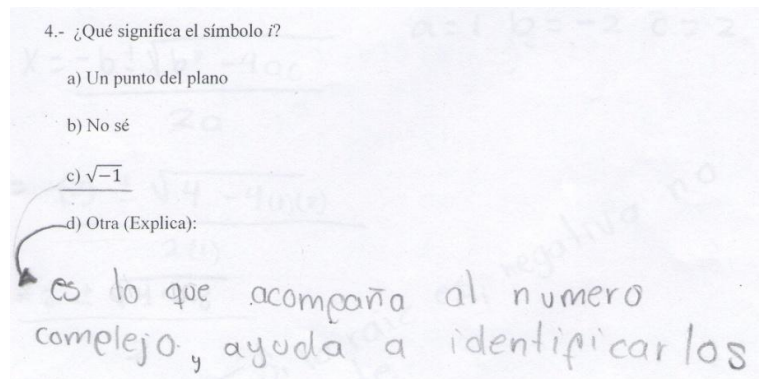 4.- ¿Qué significa el símbolo i?
a) Un punto del plano
b) No sé
c) √-1
d) Otra (Explica):
es lo que acompaña al numero
complejo, y ayuda a identificarlos
a=1 b=-2 c=2